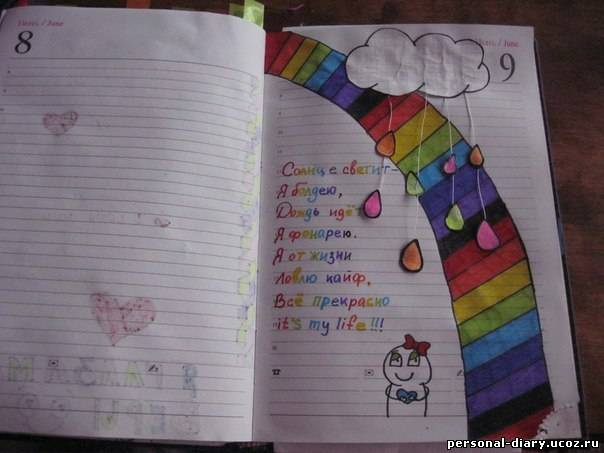 Июнь / June
8
Июнь / June
9
Солнце светит-
Я балдею,
Дождь идёт
Я фонарею.
Я от жизни
Ловлю кайф,
Всё прекрасно
it's my life!!!
personal-diary.ucoz.ru